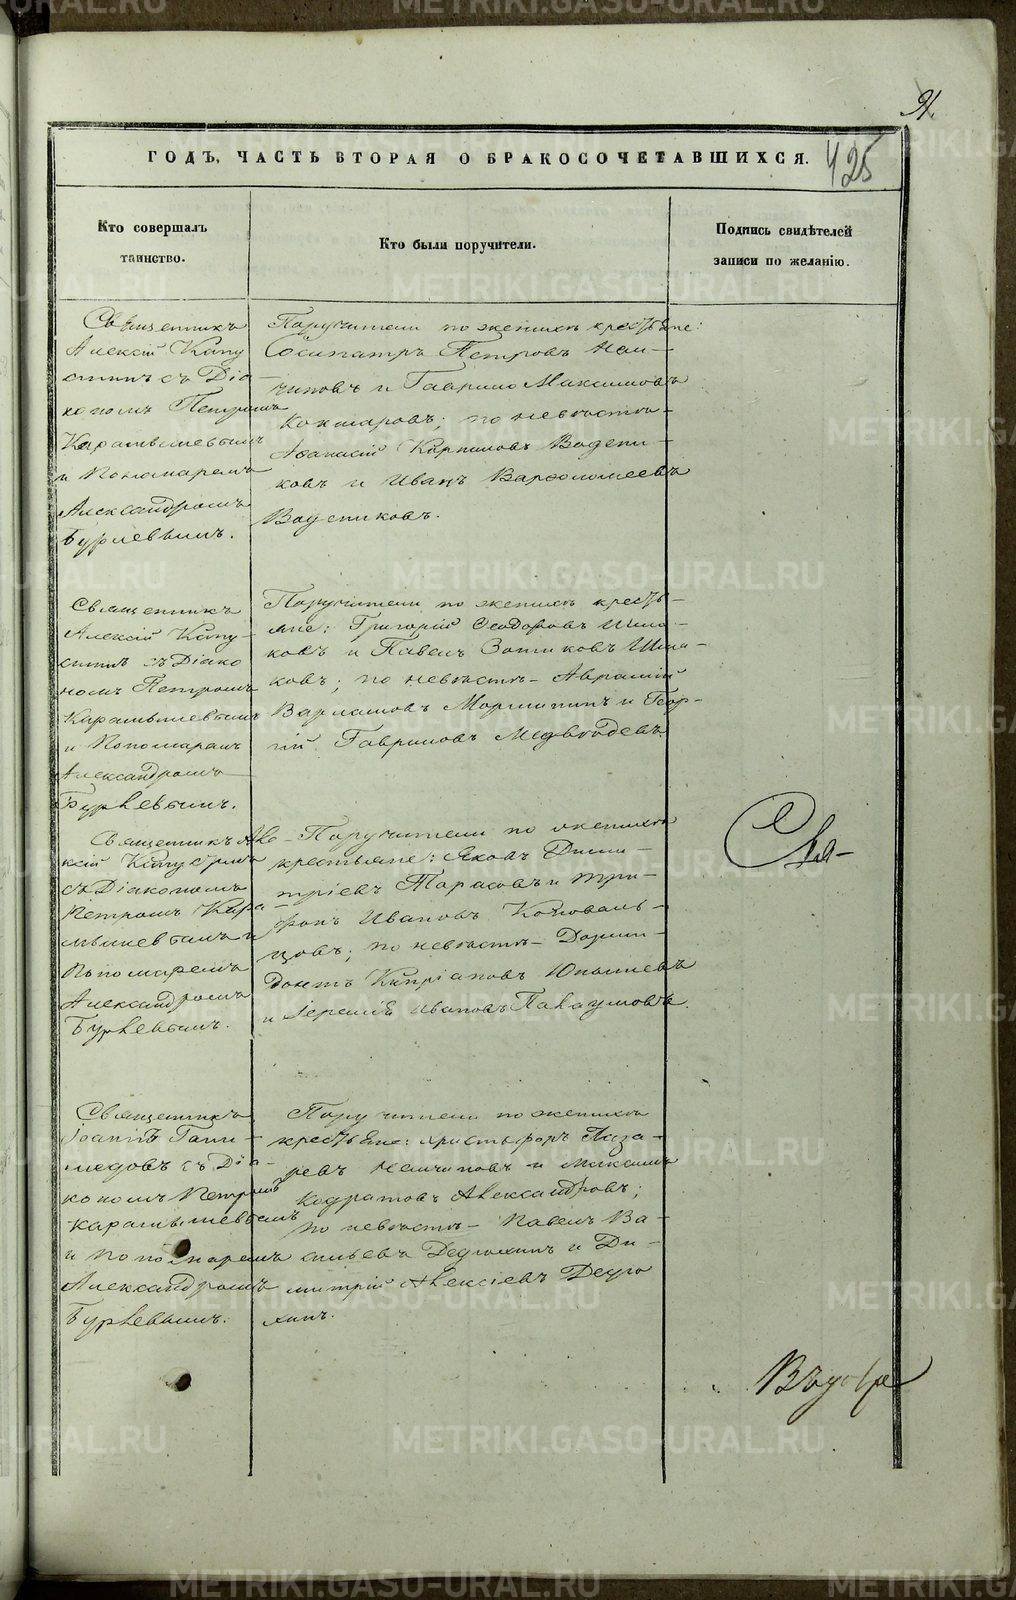 91.
425
ГОДЪ, ЧАСТЬ ВТОРАЯ О БРАКОСОЧЕТАВШИХСЯ.
Кто совершалъ
таинство.
Кто были поручители.
Подпись свидѣтелей
записи по желанію.
Священникъ
Алексій Капу
стинъ съ Діа-
кономъ Петромъ
Карамышевымъ
и Пономаремъ
Александромъ
Бурлевымъ.
Поручители по женихѣ крестьяне:
Сосипатръ Петровъ Нем-
чиновъ и Гаврило Максимовъ
Кокшаровъ; по невѣстѣ-
Афанасій Карпиловъ Водени-
ковъ и Иванъ Варфоломеевъ
Воденниковъ.
Священникъ
Алексій Капу-
стинъ съ Діако
номъ Петромъ
Карамышевымъ
и Пономаремъ
Александромъ
Бурлевымъ.
Поручители по женихѣ крестья-
яне: Григорій Ѳеодоровъ Шма-
ковъ и Павелъ Зотиковъ Шма-
ковъ; по невѣстѣ- Аврамій
Варламовъ и Геор-
гій Гавриловъ Медвѣдевъ.
Священникъ Але-
ксій Капустинъ
съ Діакономъ
Петромъ Кара-
мышевымъ и
Пономаремъ
Александромъ
Бурлевымъ.
Поручители по женихѣ
крестьяне: Яковъ Дими-
тріевъ Тарасовъ и Три-
фонъ Ивановъ Коноваль-
цовъ; по невѣстѣ- Дорми-
донтъ Кипріановъ
и Іеремія Ивановъ
Священникъ
Іоаннъ Гани-
медовъ съ Діа-
кономъ Петромъ
Карамышевымъ
и Пономаремъ
Александромъ
Бурлевымъ.
Поручители по женихѣ
крестьяне: Христофоръ Лаза-
ревъ Немчиновъ и Максимъ
Кодратовъ Александровъ;
по невѣстѣ- Павелъ Ва-
сильевъ Дедюхинъ и Ди-
митрій Алексіевъ Дедю
хинъ.